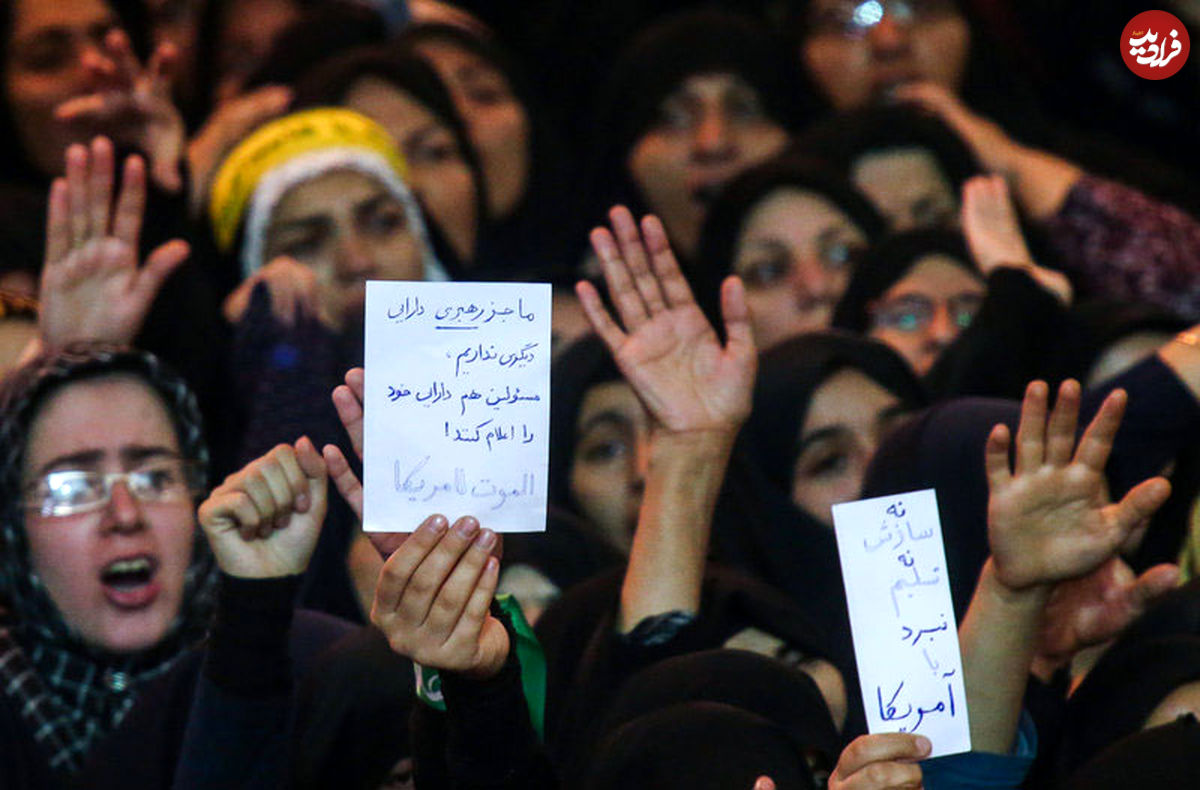 ما جز رهبری دارایی
دیگری نداریم،
مسئولین هم دارایی خود
را اعلام کنند!
الموت لامریکا
نه
سازش
نه
تسلیم
نبرد
با
آمریکا
فرادید